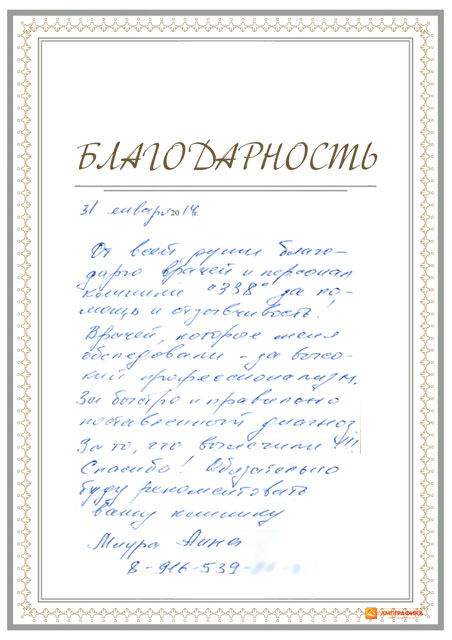 БЛАГОДАРНОСТЬ
31 января 2014г.
От всей души благо-
дарю врачей и персонал
клиники "338" за по-
мощь и отзывчивость!
Врачей, которые меня
обследовали - за высо-
кий профессионализм.
За быстро и правильно
поставленный диагноз
За то, что вылечили!!!
Спасибо! Обязательно
буду рекоментовать
вашу клинику
Анна
8-916-539-